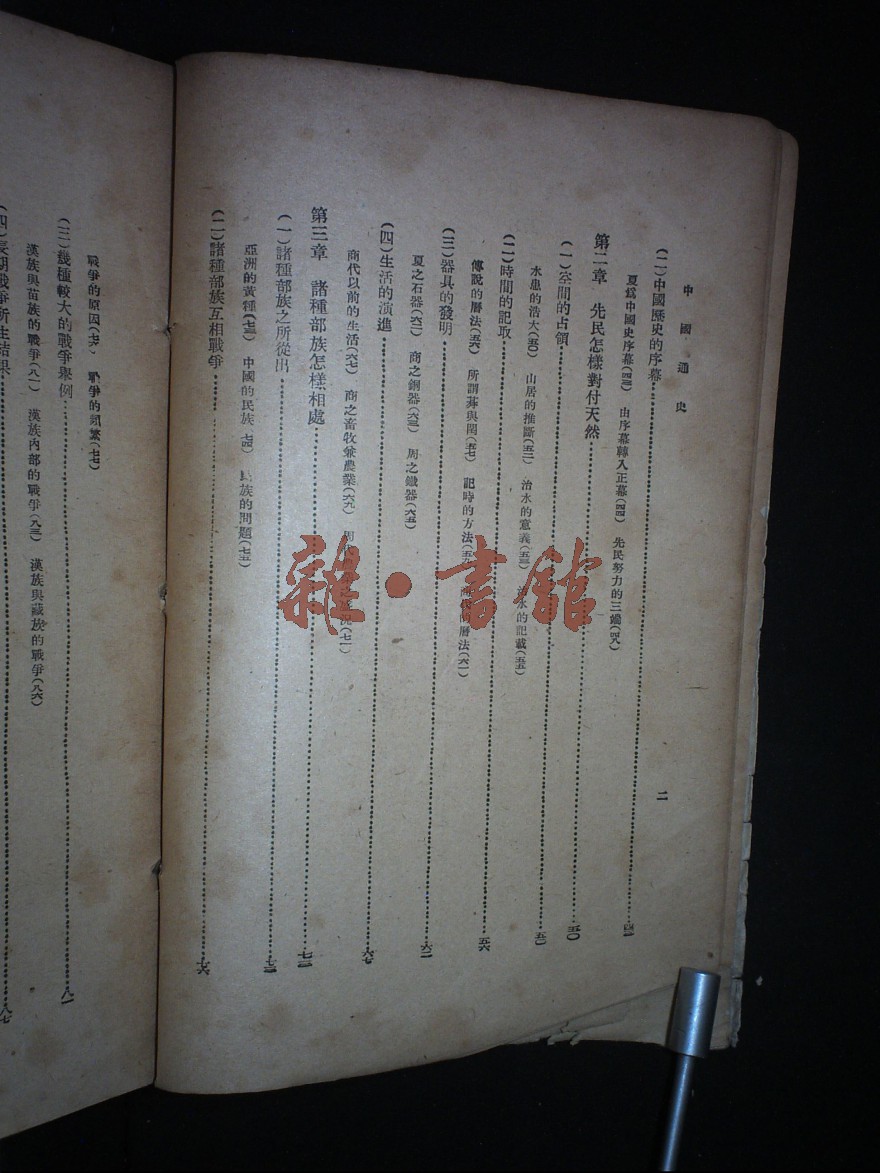 中國通史
二
(二)中國歷史的序幕……四三
夏爲中國史序幕(四三) 由序幕轉入正幕(四四) 先民努力的三端(四八)
第二章 先民怎樣對付天然……五〇
(一)空間的占領……五〇
水患的浩大(五〇) 山居的推斷(五二) 治水的意義(五三) 治水的記載(五五)
(二)時間的記取……五六
傳說的曆法(五六) 所謂朞與閏(五七) 記時的方法(五九) 商代的曆法(六一)
(三)器具的發明……六二
夏之石器(六二) 商之銅器(六三) 周之鐵器(六五)
(四)生活的演進……六七
商代以前的生活(六七) 商之畜牧兼農業(六九) 周 (七一)
第三章 諸種部族怎樣相處……七三
(一)諸種部族之所從出……七三
亞洲的黃種(七三) 中國的民族(七四) 民族的問題(七五)
(二)諸種部族互相戰爭……七六
戰爭的原因(七六) 戰爭的頻繁(七七)
(三)幾種較大的戰爭舉例……八一
漢族與苗族的戰爭(八一) 漢族內部的戰爭(八三) 漢族與藏族的戰爭(八六)
(四)長期戰爭所生結果……八七
雜·書館